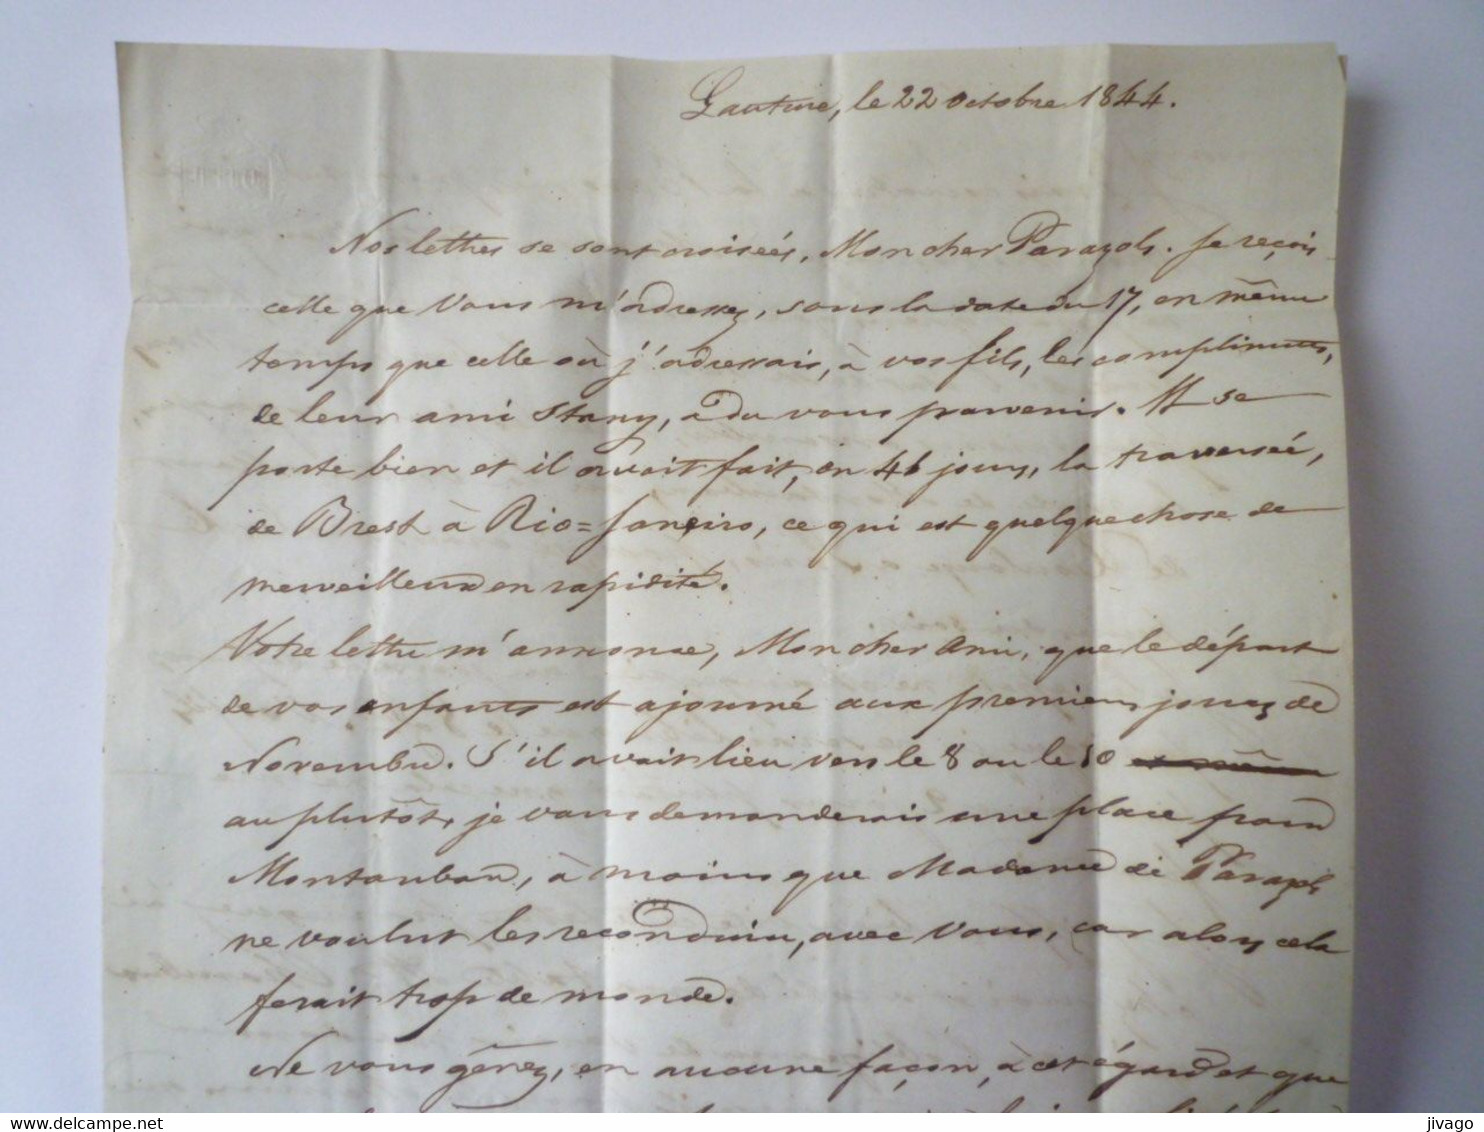 Lautine, le 22 octobre 1844.
Nos lettres se sont croisées, Mon cher Parazols. Je reçois
celle que vous m'adressez, sous la date du 17, en même
temps que celle où j'adressais, à vos fils, les compliments,
de leur ami Stany, a du vous parvenir. Il se
porte bien et il avait fait, en 46 jours, la traversée,
de Brest à Rio=Janeiro, ce qui est quelque chose de
merveilleux en rapidité.
Votre lettre m'annonce, Mon cher Ami, que le départ
de vos enfants est ajourné aux premiers jours de
Novembre. S'il avait lieu vers le 8 ou le 10
au plutôt, je vous demanderais une place pour
Montauban, à moins que Madame de Parazols
ne voulut les reconduire, avec vous, car alors cela
ferait trop de monde.
Ne vous gênez, en aucune façon, à cet égard et que
jivago